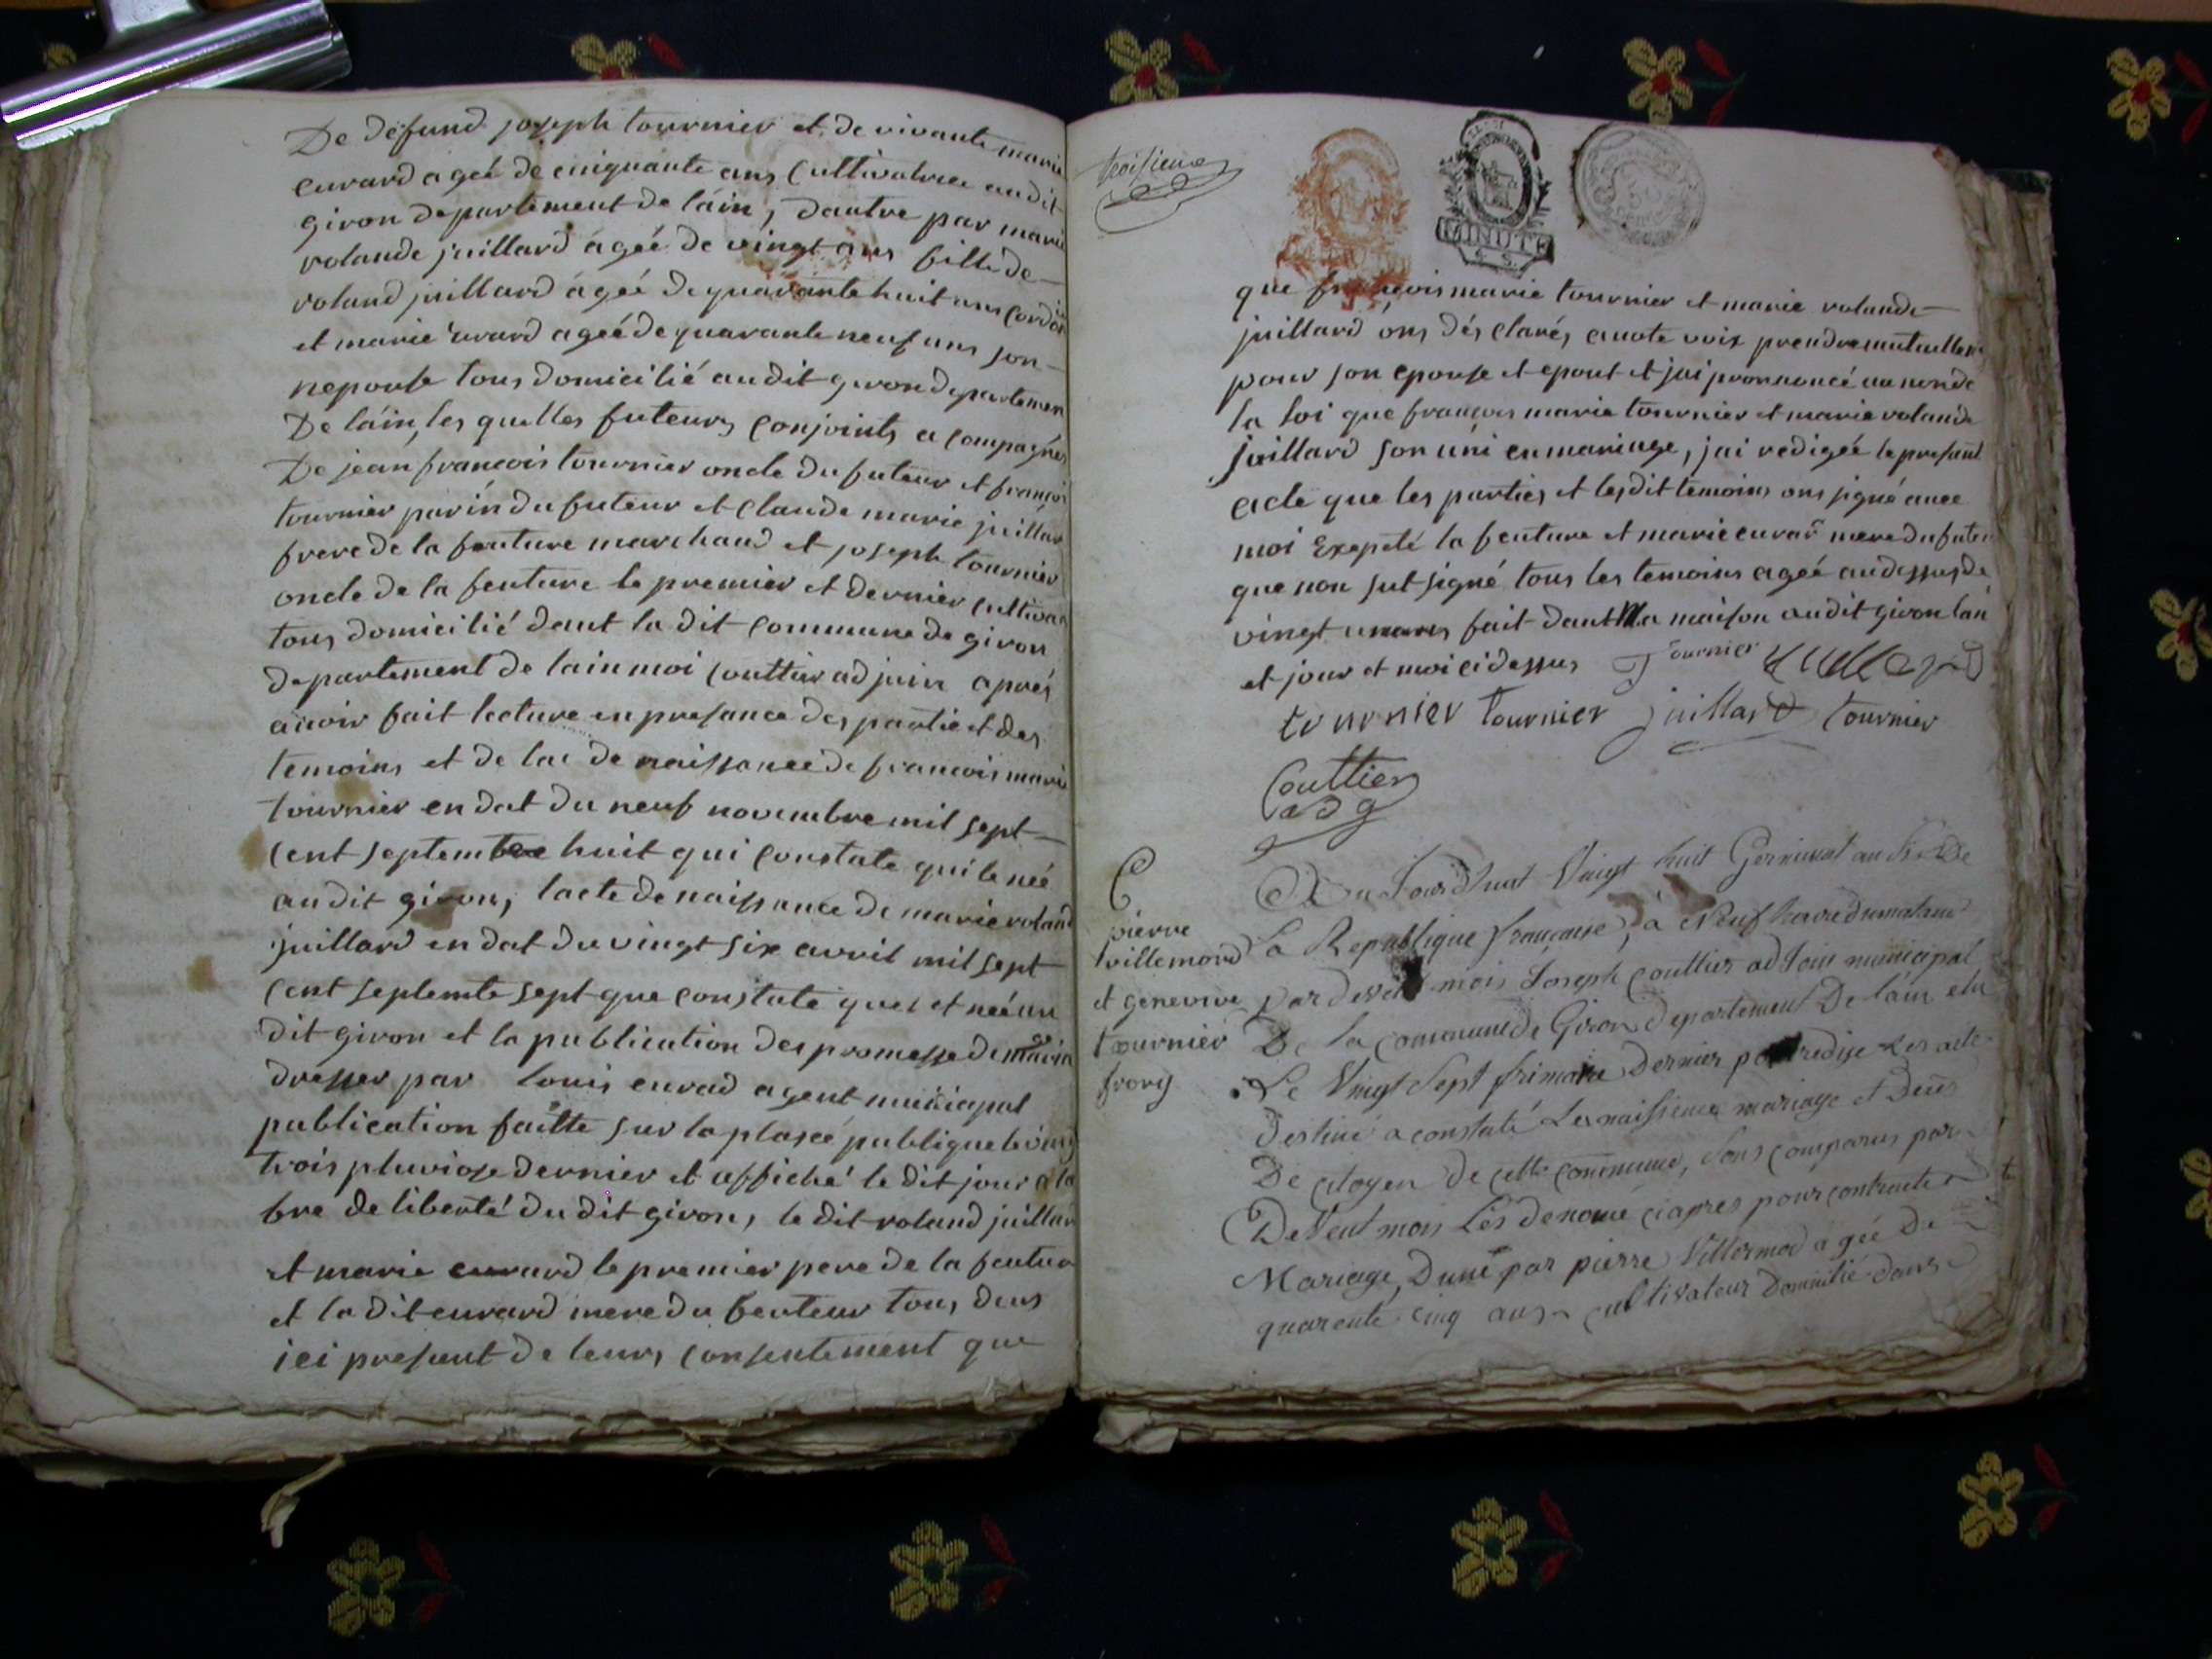 De defund joseph tournier et de vivante marie
evrard ageé de cinquante ans Cultivatrice audit
giron departement de láin, dautre par marie
rolande juillard ágeé de vingt ans fille de
roland juillard ágeé de quarante huit ans Cordon
et marie evrard ageé de quarante neuf ans son
nepouse tous domicilié audit giron departemen
De láin, les quelles futeurs Conjoints a Compagnés
De jean francois tournier oncle du futeur et francois
tournier parin du futeur et Claude marie juillar
frere de la feuture marchand et joseph tournier
oncle de la feuture le premier et dernier Cultivat
tous domicilié dant la dit Commune de giron
departement de lain moi Couttier adjuin aprés
avoir fait lecture en presance des partie et des
temoins et de lac de naissance de francois marie
tournier en dat du neuf novembre mil sept
Cent septemte huit qui Constate qui le neé
audit giron, lacte de naissance de marie roland
juillard en dat du vingt six avril mil sept
Cent septemte sept que Constate quel et neé au
dit giron et la publication des promesse de maria
dresser par louis evrad agent municipal
publication faitte sur la plaseé publique le ving
trois pluviose dernier et affiché le dit jour a la
bre de liberté du dit giron, le dit roland juillar
et marie evrard le premier pere de la feutur
et la dit evrard mere du feuteur tous deus
ici presant de leurs Consentement que
troisieme
MINUTE
que francois marie tournier et marie rolande
juillard ons dés clarés a aute voix prendre mutuellem
pour son epouse et epout et jai pronnoncé au non de
la loi que francois marie tournier et marie rolande
juillard son uni en mariage, jai redigée le presant
acte que les parties et lesdit temoins ons signé avec
moi Exepeté la feuture et marie evrar mere du futeu
que non sut signé tous les temoins ageé au dessus de
vingt un ans fait dant Ma maison audit giron lan
et jour et moi ci dessus Tournier
tournier tournier juillard tournier
Couttier
adg
Du Jourdhuat Vingt huit Germinal an Six De
pierre
villemord
et genevive
tournier
frorg
La Republique francaise, à Neuf heure du matane
par devent mois Joseph Couttier adJoin municipal
De la commune de Giron departement De láin elu
Le Vingt Sept frimaire Dernier pour redige Les acte
Destiné a constaté Les naissence mariage et Deces
De citoyen de cette commune, Sons comparus par
DeVent mois Les denomé ci apres pour contracte
Mariage, Dune par pierre Villermod a geé De
quarente cinq ans cultivateur Domicilié dans